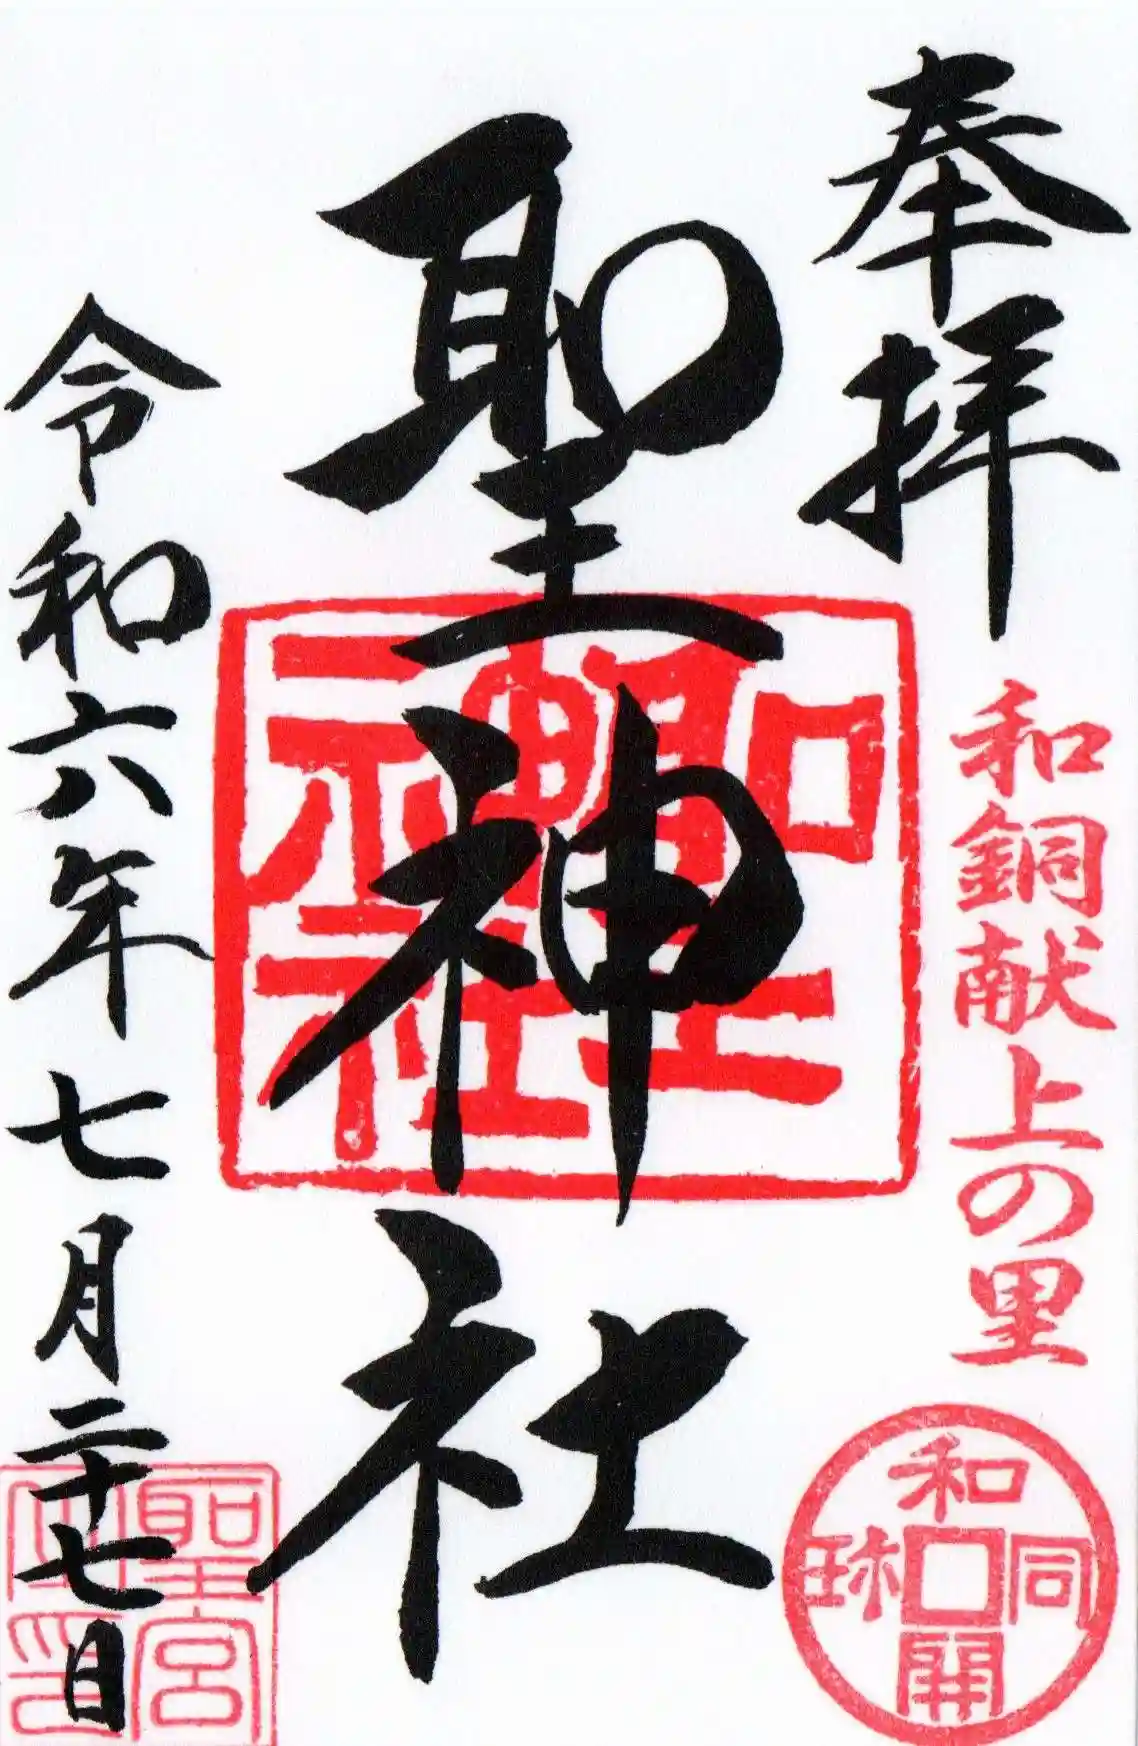 奉拝
和銅献上の里
和同開珎
聖神社
聖神社
令和六年七月二十七日
聖宮